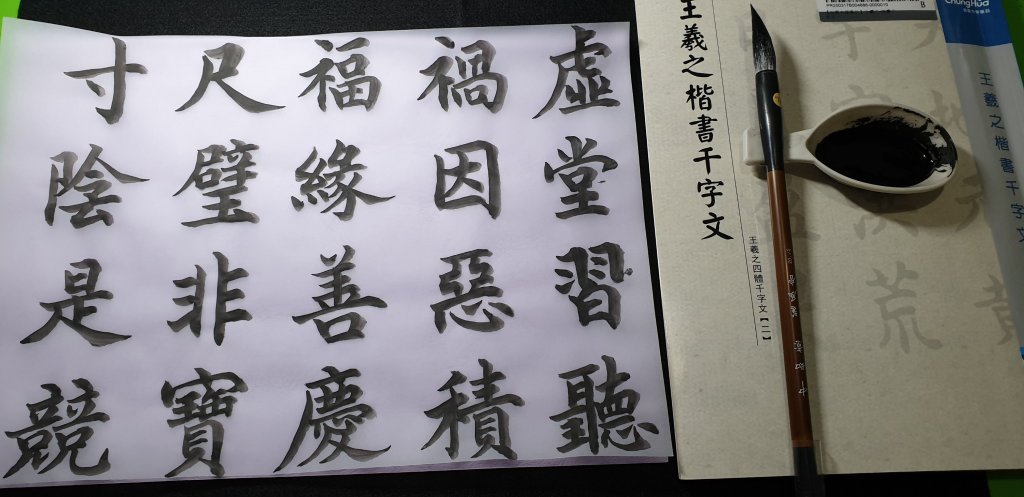 虛堂習聽
禍因惡積
福緣善慶
尺璧非寶
寸陰是競
王羲之楷書千字文
王羲之四體千字文【二】
ChungHua
王羲之楷書千字文
荒
B